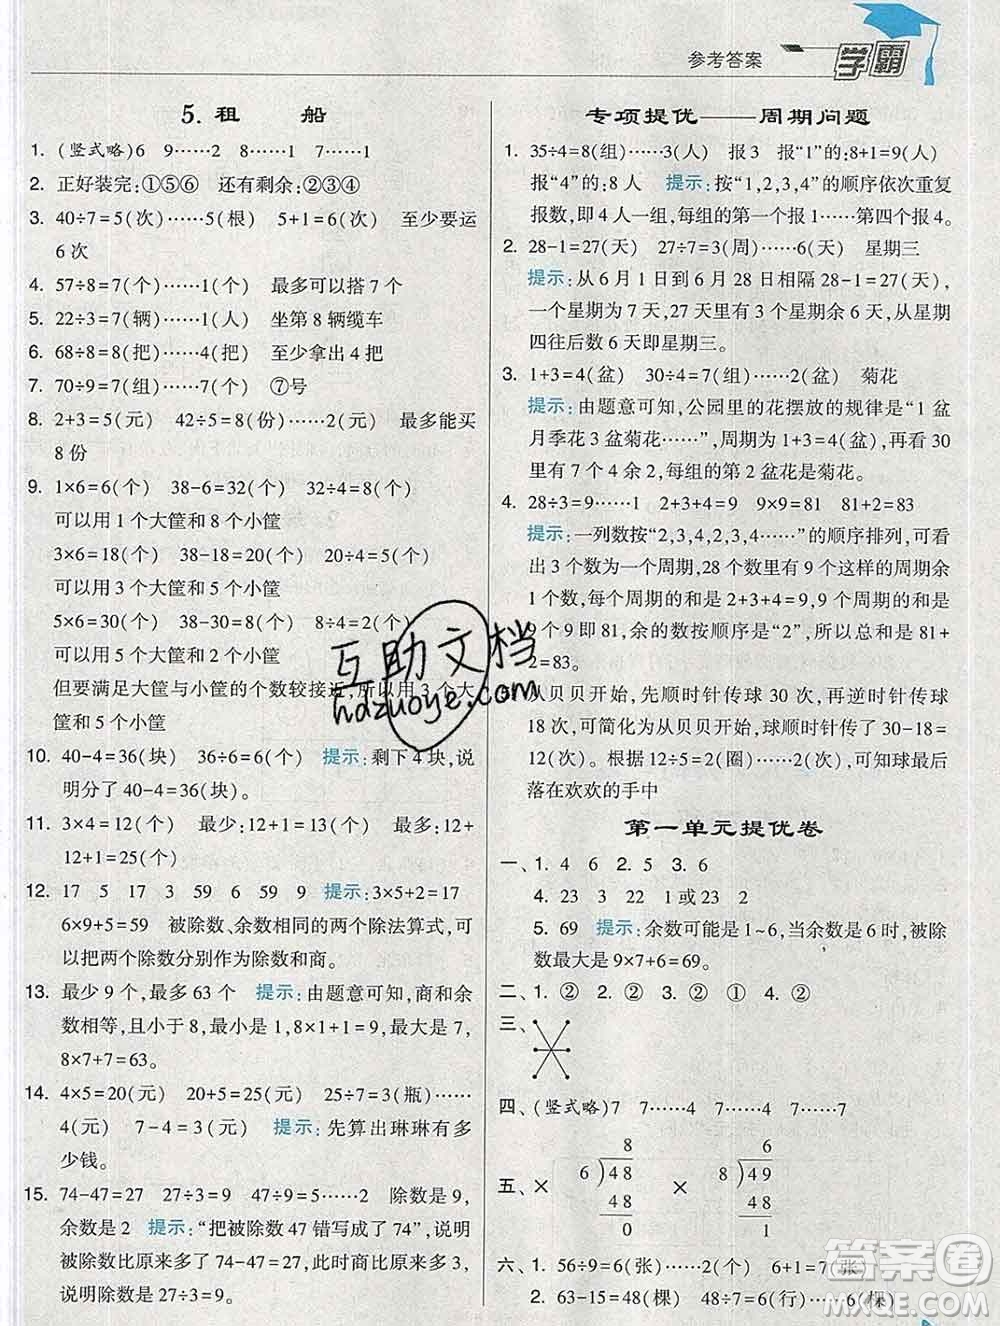 参考答案
学霸
5. 租 船
1. (竖式略)6 9……2 8……1 7……1
2. 正好装完:①⑤⑥ 还有剩余:②③④
3. 40÷7=5(次)……5(根) 5+1=6(次) 至少要运
6 次
4. 57÷8=7(个)……1(根) 最多可以搭 7 个
5. 22÷3=7(辆)……1(人) 坐第 8 辆缆车
6. 68÷8=8(把)……4(把) 至少拿出 4 把
7. 70÷9=7(组)……7(个) ⑦号
8. 2+3=5(元) 42÷5=8(份)……2(元) 最多能买
8 份
9. 1×6=6(个) 38-6=32(个) 32÷4=8(个)
可以用 1 个大筐和 8 个小筐
3×6=18(个) 38-18=20(个) 20÷4=5(个)
可以用 3 个大筐和 5 个小筐
5×6=30(个) 38-30=8(个) 8÷4=2(个)
可以用 5 个大筐和 2 个小筐
但要满足大筐与小筐的个数较接近,所以用 3 个大
筐和 5 个小筐
10. 40-4=36(块) 36÷6=6(块) 提示:剩下 4 块,说
明分了 40-4=36(块)。
11. 3×4=12(个) 最少:12+1=13(个) 最多:12+
12+1=25(个)
12. 17 5 17 3 59 6 59 9 提示:3×5+2=17
6×9+5=59 被除数、余数相同的两个除法算式,可
以把两个除数分别作为除数和商。
13. 最少 9 个,最多 63 个 提示:由题意可知,商和余
数相等,且小于 8,最小是 1,8×1+1=9,最大是 7,
8×7+7=63。
14. 4×5=20(元) 20+5=25(元) 25÷7=3(瓶)……
4(元) 7-4=3(元) 提示:先算出琳琳有多
少钱。
15. 74-47=27 27÷3=9 47÷9=5……2 除数是 9,
余数是 2 提示:“把被除数 47 错写成了 74”,说明
被除数比原来多了 74-47=27,此时商比原来多 3,
说明除数是 27÷3=9。
专项提优——周期问题
1. 35÷4=8(组)……3(人) 报 3 报“1”的:8+1=9(人)
报“4”的:8 人 提示:按“1,2,3,4”的顺序依次重复
报数,即 4 人一组,每组的第一个报 1……第四个报 4。
2. 28-1=27(天) 27÷7=3(周)……6(天) 星期三
提示:从 6 月 1 日到 6 月 28 日相隔 28-1=27(天),
一个星期为 7 天,27 天即 3 个星期余 6 天,从星期
四往后数 6 天即星期三。
3. 1+3=4(盆) 30÷4=7(组)……2(盆) 菊花
提示:由题意可知,公园里的花摆放的规律是“1 盆
月季花 3 盆菊花……”,周期为 1+3=4,再看 30
里有 7 个 4 余 2,每组的第 2 盆花是菊花。
4. 28÷3=9……1 2+3+4=9 9×9=81 81+2=83
提示:一列数按“2,3,4,2,3,4……”的顺序排列,可看出
3 个数为一个周期,28个数里有 9 个这样的周期余
1 个数,每个周期的和是 2+3+4=9,9 个周期就是
9 个 9 即 81,余的数按顺序是“2”,所以总和是 81+
2=83。
从贝贝开始,先顺时针传球 30 次,再逆时针传球
18 次,可简化为从贝贝开始,球顺时针传了 30-18=
12(次)。根据 12÷5=2(圈)……2(次),可知球最后
落在欢欢的手中
第一单元提优卷
一、1. 4 6 2. 5 3. 6
4. 23 23 1 或 23 2
5. 69 提示:余数可能是 1~6,当余数是 6 时,被除
数最大是 9×7+6=69。
二、1. ② 2. ③ 3. ② ① 4. ②
三、
四、(竖式略)7 7……4 7……4 7……7
五、× 8 6)48 48 0 × 6 8)49 48 1
六、1. 56÷9=6(张)……2(个) 6+1=7(张)
2. 63-15=48(棵) 48÷7=6(行)……6(棵)
互助文档
hdzuoye.com
答案圈
MXQE.COM